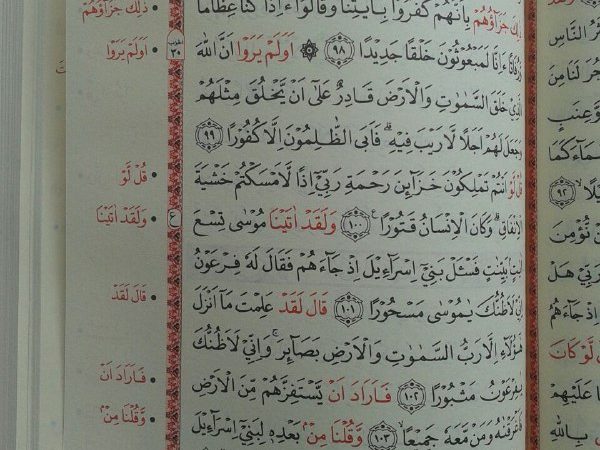 ذٰلِكَ جَزَاۤؤُهُمْ بِاَنَّهُمْ كَفَرُوْا بِاٰيٰتِنَا وَقَالُوْٓا ءَاِذَا كُنَّا عِظَامًا
وَّرُفَاتًا ءَاِنَّا لَمَبْعُوْثُوْنَ خَلْقًا جَدِيْدًا ٩٨ اَوَلَمْ يَرَوْا اَنَّ اللّٰهَ
الَّذِيْ خَلَقَ السَّمٰوٰتِ وَالْاَرْضَ قَادِرٌ عَلٰٓى اَنْ يَّخْلُقَ مِثْلَهُمْ
وَجَعَلَ لَهُمْ اَجَلًا لَّا رَيْبَ فِيْهِ فَاَبَى الظّٰلِمُوْنَ اِلَّا كُفُوْرًا ٩٩
قُلْ لَّوْ اَنْتُمْ تَمْلِكُوْنَ خَزَاۤئِنَ رَحْمَةِ رَبِّيْٓ اِذًا لَّاَمْسَكْتُمْ خَشْيَةَ
الْاِنْفَاقِ وَكَانَ الْاِنْسَانُ قَتُوْرًا ١٠٠ وَلَقَدْ اٰتَيْنَا مُوْسٰى تِسْعَ
اٰيٰتٍ بَيِّنٰتٍ فَسْـَٔلْ بَنِيْٓ اِسْرَاۤءِيْلَ اِذْ جَاۤءَهُمْ فَقَالَ لَهٗ فِرْعَوْنُ
اِنِّيْ لَاَظُنُّكَ يٰمُوْسٰى مَسْحُوْرًا ١٠١ قَالَ لَقَدْ عَلِمْتَ مَآ اَنْزَلَ
هٰٓؤُلَاۤءِ اِلَّا رَبُّ السَّمٰوٰتِ وَالْاَرْضِ بَصَاۤئِرَ وَاِنِّيْ لَاَظُنُّكَ
يٰفِرْعَوْنُ مَثْبُوْرًا ١٠٢ فَاَرَادَ اَنْ يَّسْتَفِزَّهُمْ مِّنَ الْاَرْضِ
فَاَغْرَقْنٰهُ وَمَنْ مَّعَهٗ جَمِيْعًا ١٠٣ وَّقُلْنَا مِنْۢ بَعْدِهٖ لِبَنِيْٓ اِسْرَاۤءِيْلَ
ذٰلِكَ جَزَاۤؤُهُمْ
اَوَلَمْ يَرَوْا
٣٠
قُلْ لَّوْ
وَلَقَدْ اٰتَيْنَا
ع
قَالَ لَقَدْ
فَاَرَادَ اَنْ
وَّقُلْنَا مِنْۢ